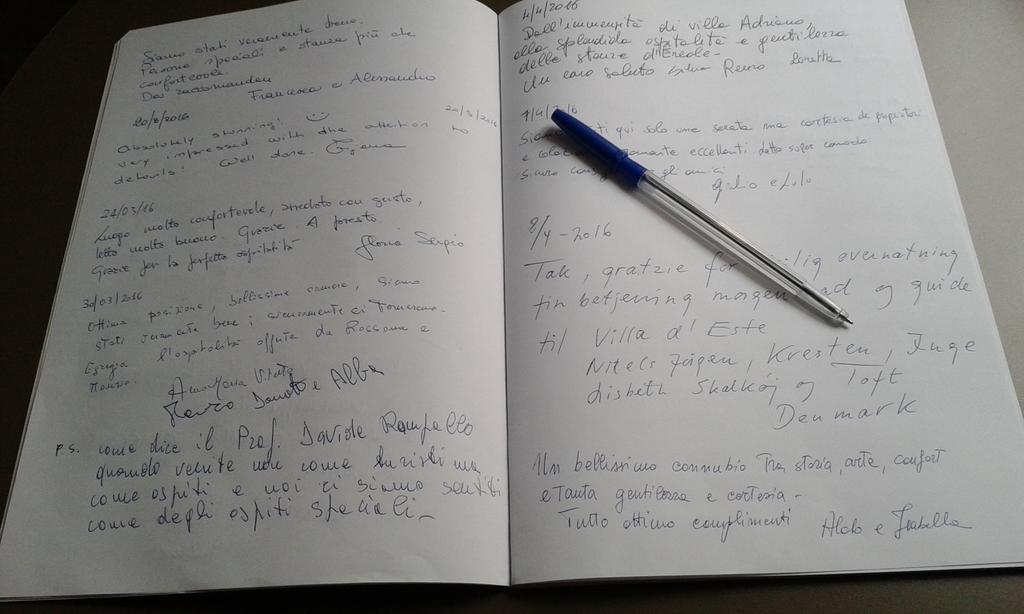 Siamo stati veramente bene.
Persone speciali e stanza più che
confortevole.
Da raccomandare
Francesca e Alessandro
20/3/2016
20/3/2016
Absolutely stunning!
very impressed with the attention to
details! Well done.
27/03/16
Luogo molto confortevole, arredato con gusto,
letto molto buono. Grazie. A presto.
Grazie per la perfetta ospitalità
Gloria Sergio
30/03/2016
Ottima posizione, bellissime camere, siamo
stati veramente bene; sicuramente ci torneremo.
l'ospitalità offerta da Rossana e
AnnaMaria
Donato e Alba
P.S. come dice il Prof. Davide Rampello
quando venite non come turisti ma
come ospiti e noi ci siamo sentiti
come degli ospiti speciali
4/4/2016
Dall'immensità di villa Adriano,
alla splendida ospitalità e gentilezza
delle stanze d'Ercole -
Un caro saluto Remo Loretta
7/4/2016
qui solo una serata ma cortesia dei proprietari
e eccellenti letto super comodo
amici
Giulio e Lulo
8/4-2016
Tak, gratzie for overnatning
fin betjening og guide
til Villa d'Este
Niels Jörgen, Kresten, Inge
Lisbeth Skalköj og Toft
Denmark
Un bellissimo connubio tra storia, arte, confort
e tanta gentilezza e cortesia -
Tutto ottimo complimenti Aldo e Isabella